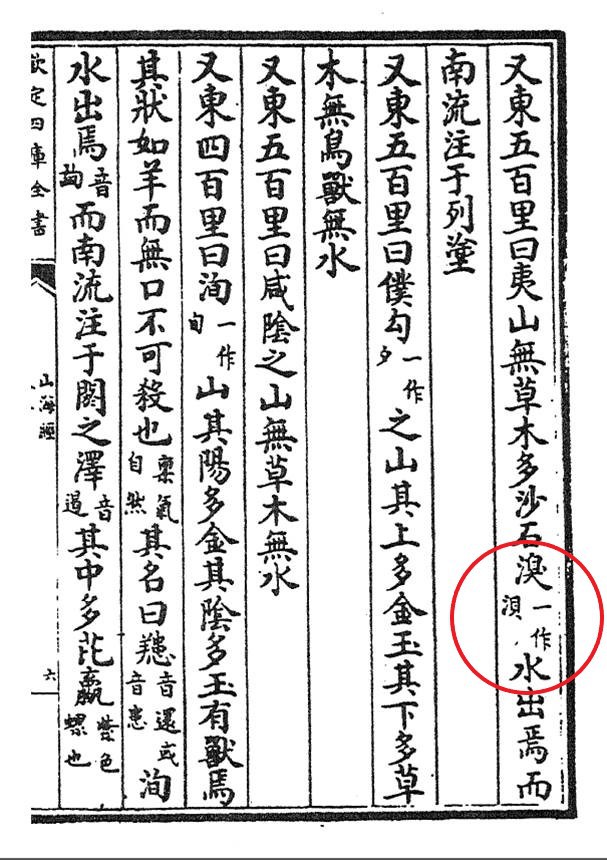 又東五百里曰夷山無草木多沙石湨一作浿水出焉而
南流注于列塗
又東五百里曰僕勾一作夕之山其上多金玉其下多草
木無鳥獸無水
又東五百里曰咸陰之山無草木無水
又東四百里曰洵一作旬山其陽多金其陰多玉有獸焉
其狀如羊而無口不可殺也稟氣自然其名曰䍺音還或音患洵
水出焉音詢而南流注于閼之澤音遏其中多芘蠃紫色螺也
欽定四庫全書
山海經
六